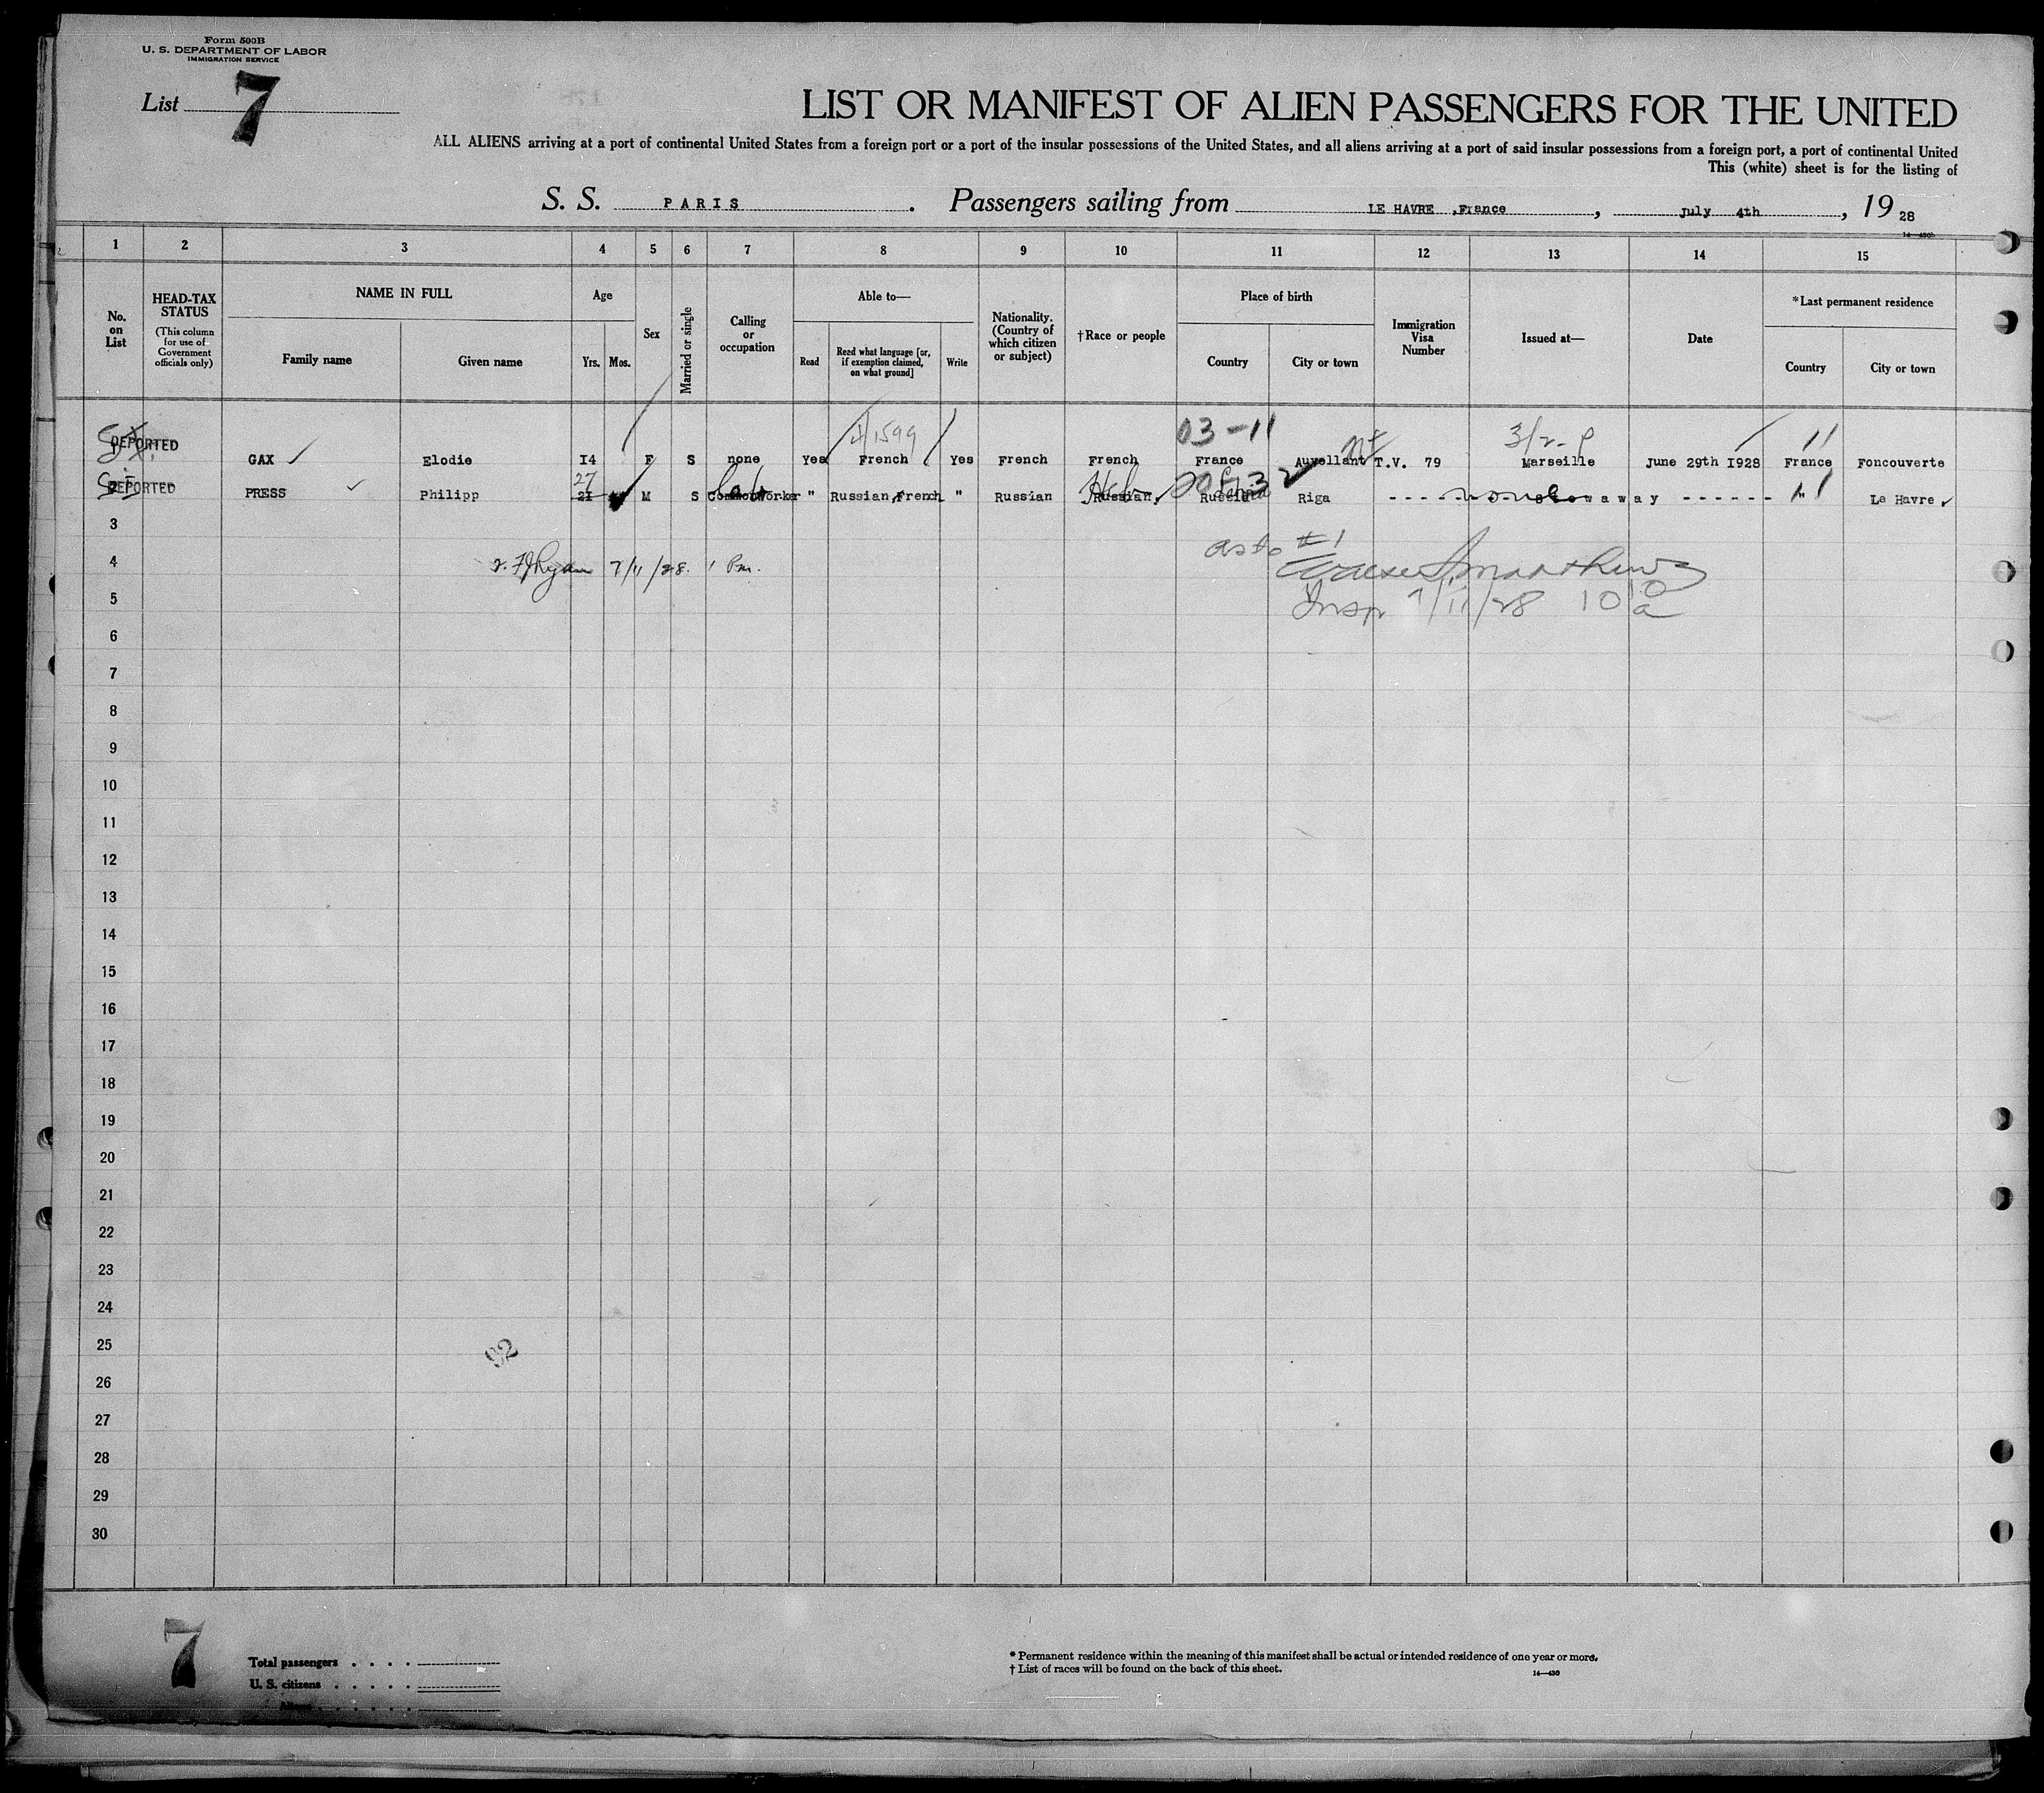 Form 500B
U. S. DEPARTMENT OF LABOR
IMMIGRATION SERVICE
List 7
LIST OR MANIFEST OF ALIEN PASSENGERS FOR THE UNITED
ALL ALIENS arriving at a port of continental United States from a foreign port or a port of the insular possessions of the United States, and all aliens arriving at a port of said insular possessions from a foreign port, a port of continental United
This (white) sheet is for the listing of
S. S. PARIS . Passengers sailing from LE HAVRE ,France , July 4th , 19 28
14—430b
1 2 3 4 5 6 7 8 9 10 11 12 13 14 15
No. on List
HEAD-TAX STATUS
(This column for use of Government officials only)
NAME IN FULL
Family name Given name
Age
Yrs. Mos.
Sex
Married or single
Calling or occupation
Able to—
Read
Read what language [or, if exemption claimed, on what ground]
Write
Nationality. (Country of which citizen or subject)
†Race or people
Place of birth
Country City or town
Immigration Visa Number
Issued at—
Date
*Last permanent residence
Country City or town
4/1599 03-11 3/2-P
DEPORTED GAX Elodie I4 F S none Yes French Yes French French France Auvellant T.V. 79 Marseille June 29th I928 France Foncouverte
27
2 DEPORTED PRESS Philipp 2I M S " Russian,French " Russian Heb Russian Russia Riga - - - - stowaway - - - - - - " Le Havre
3
as to #1
4 Ryan 7/11/28. 1 Pm.
5 Insp 7/11/28 10 10 a
6
7
8
9
10
11
12
13
14
15
16
17
18
19
20
21
22
23
24
25
92
26
27
28
29
30
7
Total passengers . . . .
U. S. citizens . . . . .
* Permanent residence within the meaning of this manifest shall be actual or intended residence of one year or more.
† List of races will be found on the back of this sheet.
14—430